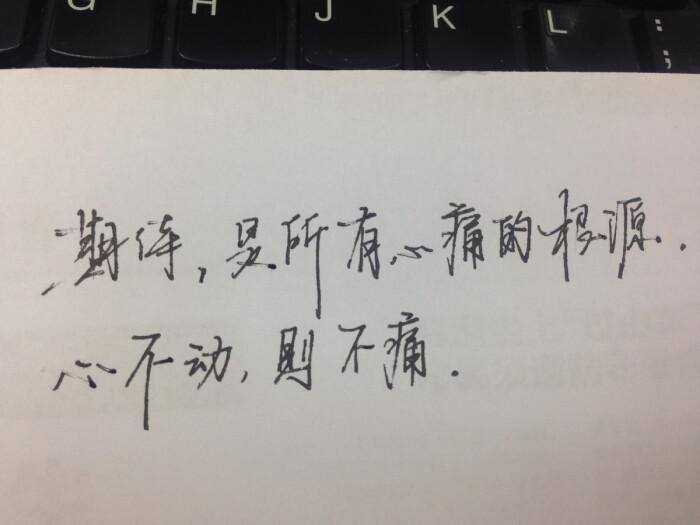 G H J K L : ;
期待,是所有心痛的根源.
心不动,则不痛.